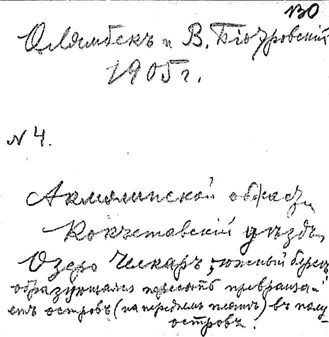 130
Олямбекъ и В. Біодровскій
1905 г.
№ 4.
Акмолинской област.
Кокчетавскій уѣздъ.
Озеро Челкаръ, южный берег
образующаяся пресыпь превраща-
етъ островъ (на переднемъ планѣ) въ полу
островъ.